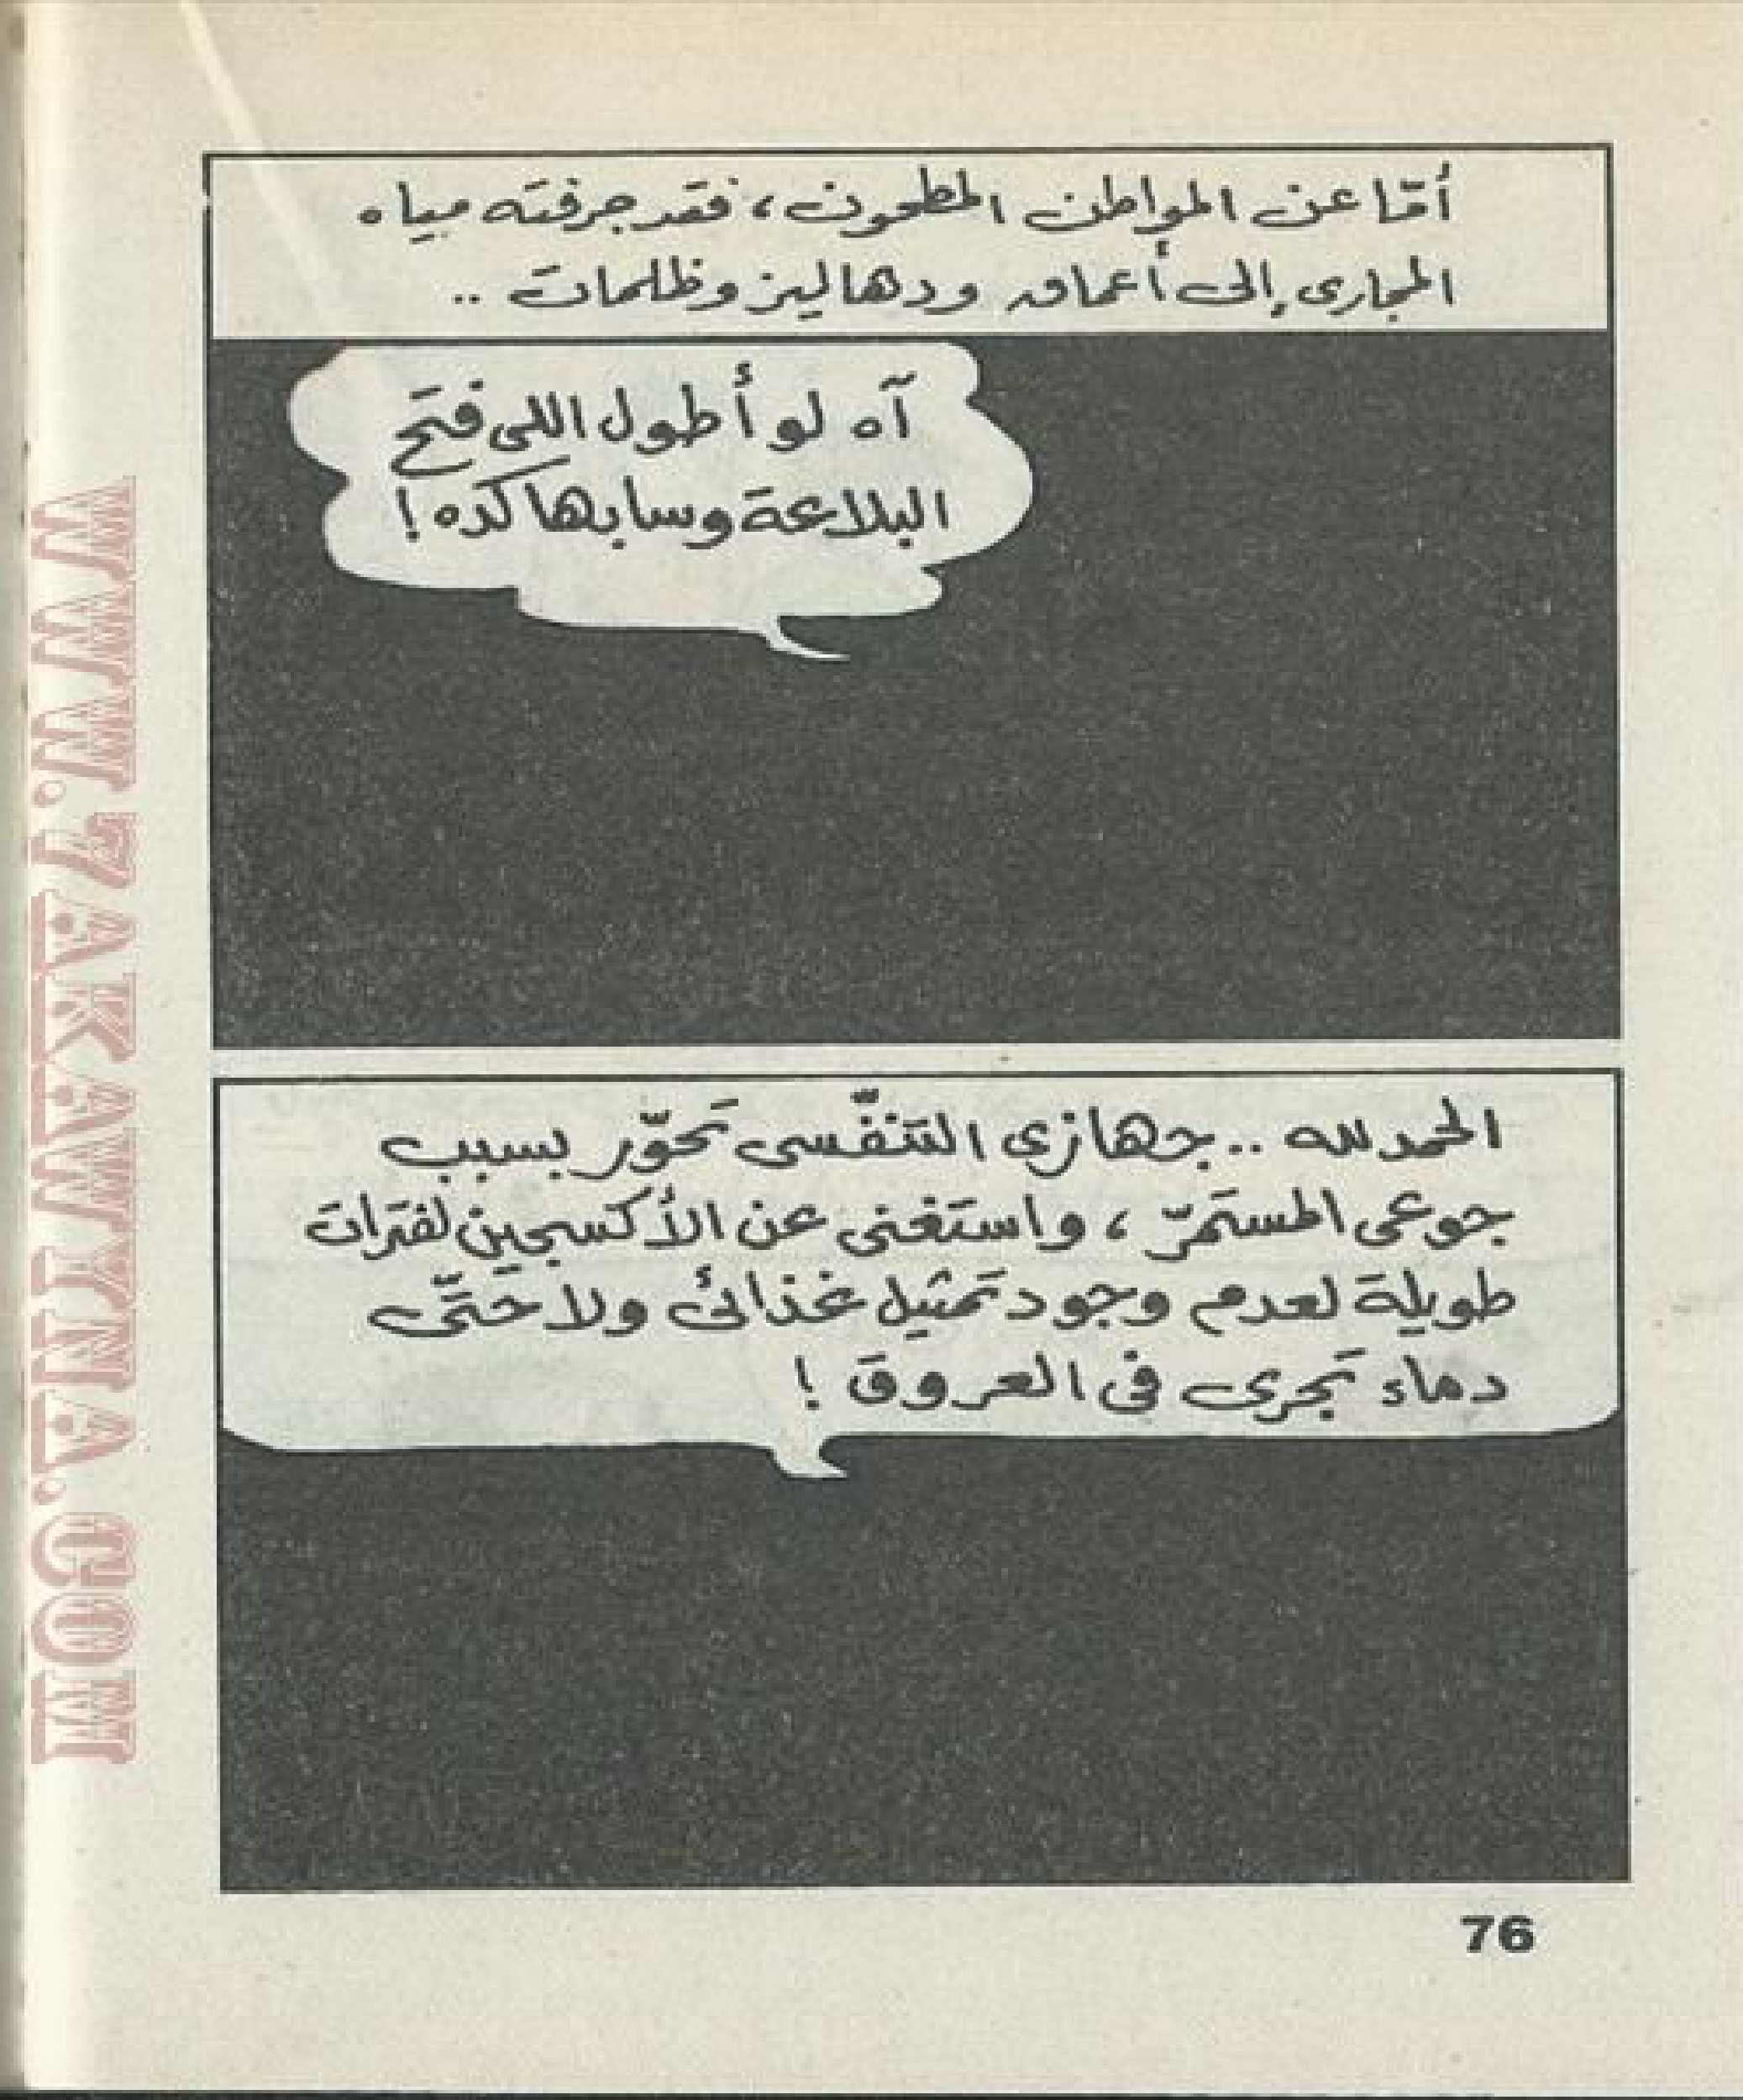 أمّا عن المواطن المطحون، فقد جرفته مياه
المجارى إلى أعماق ودهاليز وظلمات ..
آه لو أطول اللى فتح
البلاعة وسابها كده!
الحمد لله .. جهازي التنفّسى تَحوّر بسبب
جوعى المستمرّ، واستغنى عن الأكسجين لفترات
طويلة لعدم وجود تَمثيل غذائى ولا حَتّى
دماء تَجرى فى العروق !
76
WWW.ZAKAWINA.COM